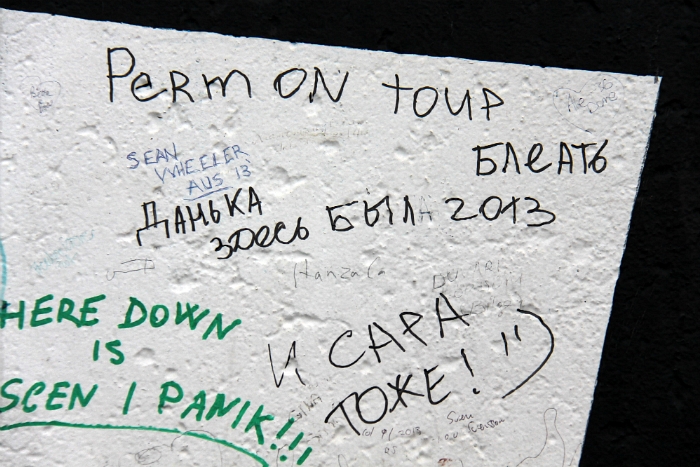 Perm ON TOUP
БЛЕАТЬ
SEAN
WHEELER
AUS 13
ДАНЬКА
ЗДЕСЬ БЫЛА 2013
Hanzala
HERE DOWN
IS
SCEN I PANIK!!!
И САРА
ТОЖЕ! ")